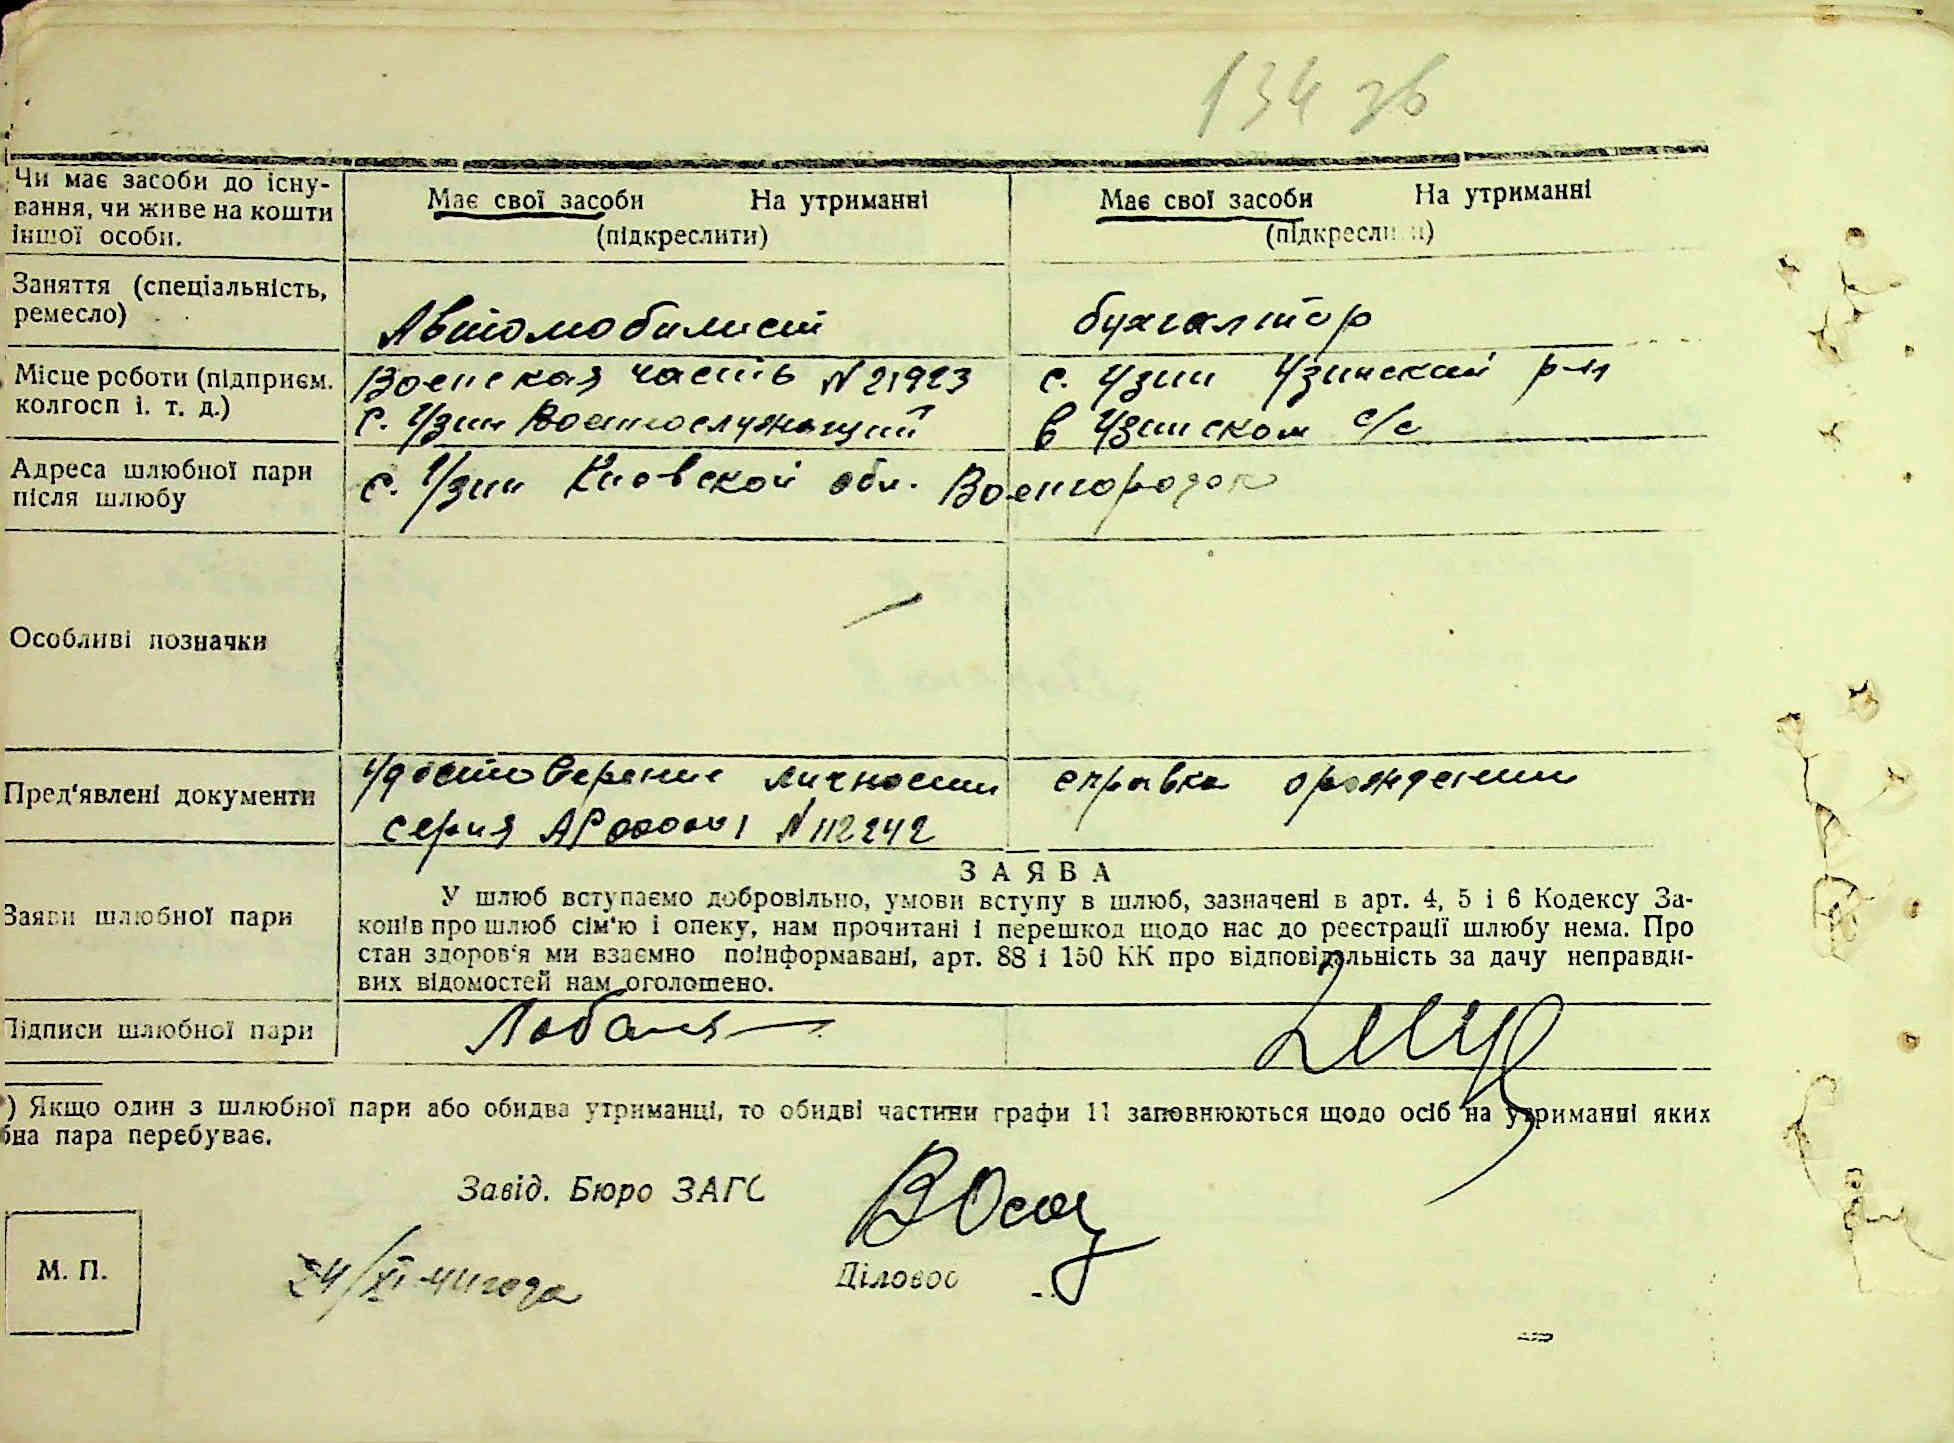 134 зв
Чи має засоби до існу-
вання, чи живе на кошти
іншої особи.
Має свої засоби На утриманні
(підкреслити)
Має свої засоби На утриманні
(підкреслити)
Заняття (спеціальність,
ремесло)
Автомобилист
бухгалтор
Місце роботи (підприєм.
колгосп і. т. д.)
Военская часть N 21923
с. Узин Военнослужащий
с. Узин Узинский р-н
в Узинском с/с
Адреса шлюбної пари
після шлюбу
с. Узин Киевской обл. Военгородок
Особливі позначки
Пред'явлені документи
Удостоверение личности
серия АР N 112242
справка орождении
Заяви шлюбної пари
ЗАЯВА
У шлюб вступаємо добровільно, умови вступу в шлюб, зазначені в арт. 4, 5 і 6 Кодексу За-
конів про шлюб сім'ю і опеку, нам прочитані і перешкод щодо нас до реєстрації шлюбу нема. Про
стан здоров'я ми взаємно поінформавані, арт. 88 і 150 КК про відповідальність за дачу неправди-
вих відомостей нам оголошено.
Підписи шлюбної пари
) Якщо один з шлюбної пари або обидва утриманці, то обидві частини графи 11 заповнюються щодо осіб на утриманні яких
бна пара перебуває.
Завід. Бюро ЗАГС
М. П.
24/XI 44 года
Діловод